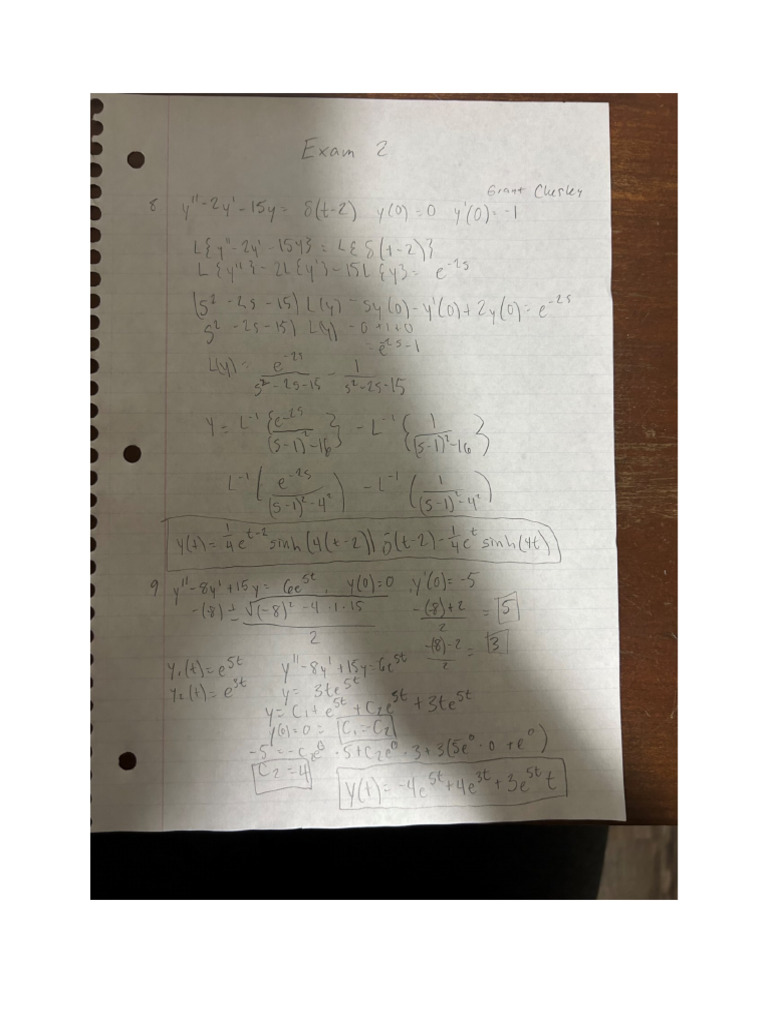 Exam 2
Grant Chesley
8 y''-2y'-15y= δ(t-2) y(0)=0 y'(0)=-1
L{y''-2y'-15y}=L{δ(t-2)}
L{y''}-2L{y'}-15L{y}= e^-2s
(s²-2s-15) L(y)-sy(0)-y'(0)+2y(0)=e^-2s
s²-2s-15) L(y)-0+1+0
=e^2s-1
L(y)= e^-2s/(s²-2s-15) - 1/(s²-2s-15)
y= L^-1{e^-2s/((s-1)²-16)} - L^-1{1/((s-1)²-16)}
L^-1(e^-2s/((s-1)²-4²)) - L^-1(1/((s-1)²-4²))
y(t)= 1/4 e^t-2 sinh(4(t-2)) δ(t-2) - 1/4 e^t sinh(4t)
9 y''-8y'+15y= 6e^5t, y(0)=0, y'(0)=-5
(-(8) ± √((-8)²-4·1·15))/2 (-(8)+2)/2 = 5
(-(8)-2)/2 = 3
y₁(t)=e^5t y''-8y'+15y=6e^5t
y₂(t)=e^3t y= 3te^5t
y=C₁+e^5t+C₂e^5t+3te^5t
y(0)=0= C₁=C₂
-5=-C₂e^0·5+C₂e^0·3+3(5e^0·0+e^0)
C₂=4 y(t)=-4e^5t+4e^3t+3e^5t t